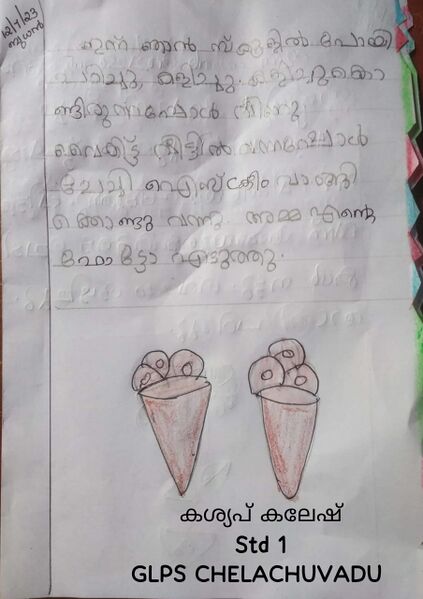 12/7/23
ബുധൻ
ഇന്ന് ഞാൻ സ്കൂളിൽ പോയി
പഠിച്ചു, കളിച്ചു. കളിച്ചുകൊ
ണ്ടിരുന്നപ്പോൾ വീണു.
വൈകിട്ട് വീട്ടിൽ വന്നപ്പോൾ
ചാച്ചി ഐസ്ക്രീം വാങ്ങി
ക്കൊണ്ടു വന്നു. അമ്മ എന്റെ
ഫോട്ടോ എടുത്തു.
കശ്യപ് കലേഷ്
Std 1
GLPS CHELACHUVADU